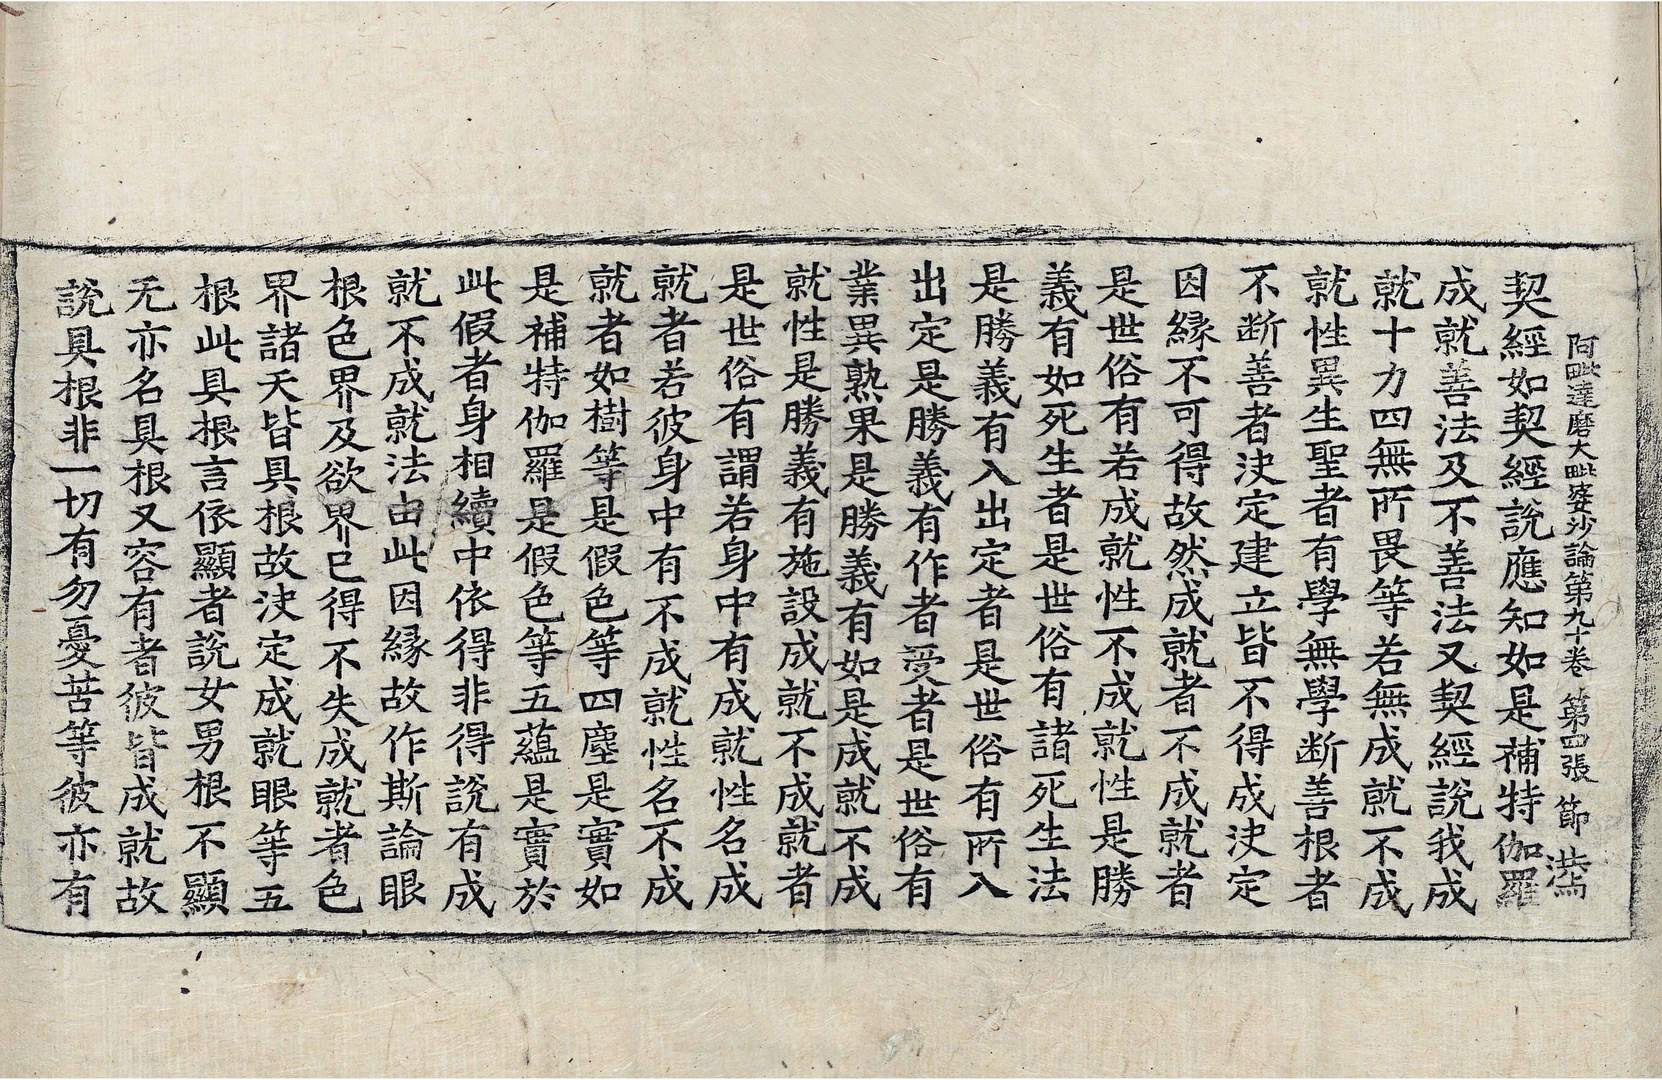 阿毗達磨大毗婆沙論第九十卷 第四張 節
契經如契經說應知如是補特伽羅
成就善法及不善法又契經說我成
就十力四無所畏等若無成就不成
就性異生聖者有學無學断善根者
不断善者決定建立皆不得成決定
因緣不可得故然成就者不成就者
是世俗有若成就性不成就性是勝
義有如死生者是世俗有諸死生法
是勝義有入出定者是世俗有所入
出定是勝義有作者受者是世俗有
業異熟果是勝義有如是成就不成
就性是勝義有施設成就不成就者
是世俗有謂若身中有成就性名成
就者若彼身中有不成就性名不成
就者如樹等是假色等四塵是實如
是補特伽羅是假色等五蘊是實於
此假者身相續中依得非得說有成
就不成就法由此因緣故作斯論眼
根色界及欲界已得不失成就者色
界諸天皆具根故決定成就眼等五
根此具根言依顯者說女男根不顯
无亦名具根又容有者彼皆成就故
說具根非一切有勿憂苦等彼亦有